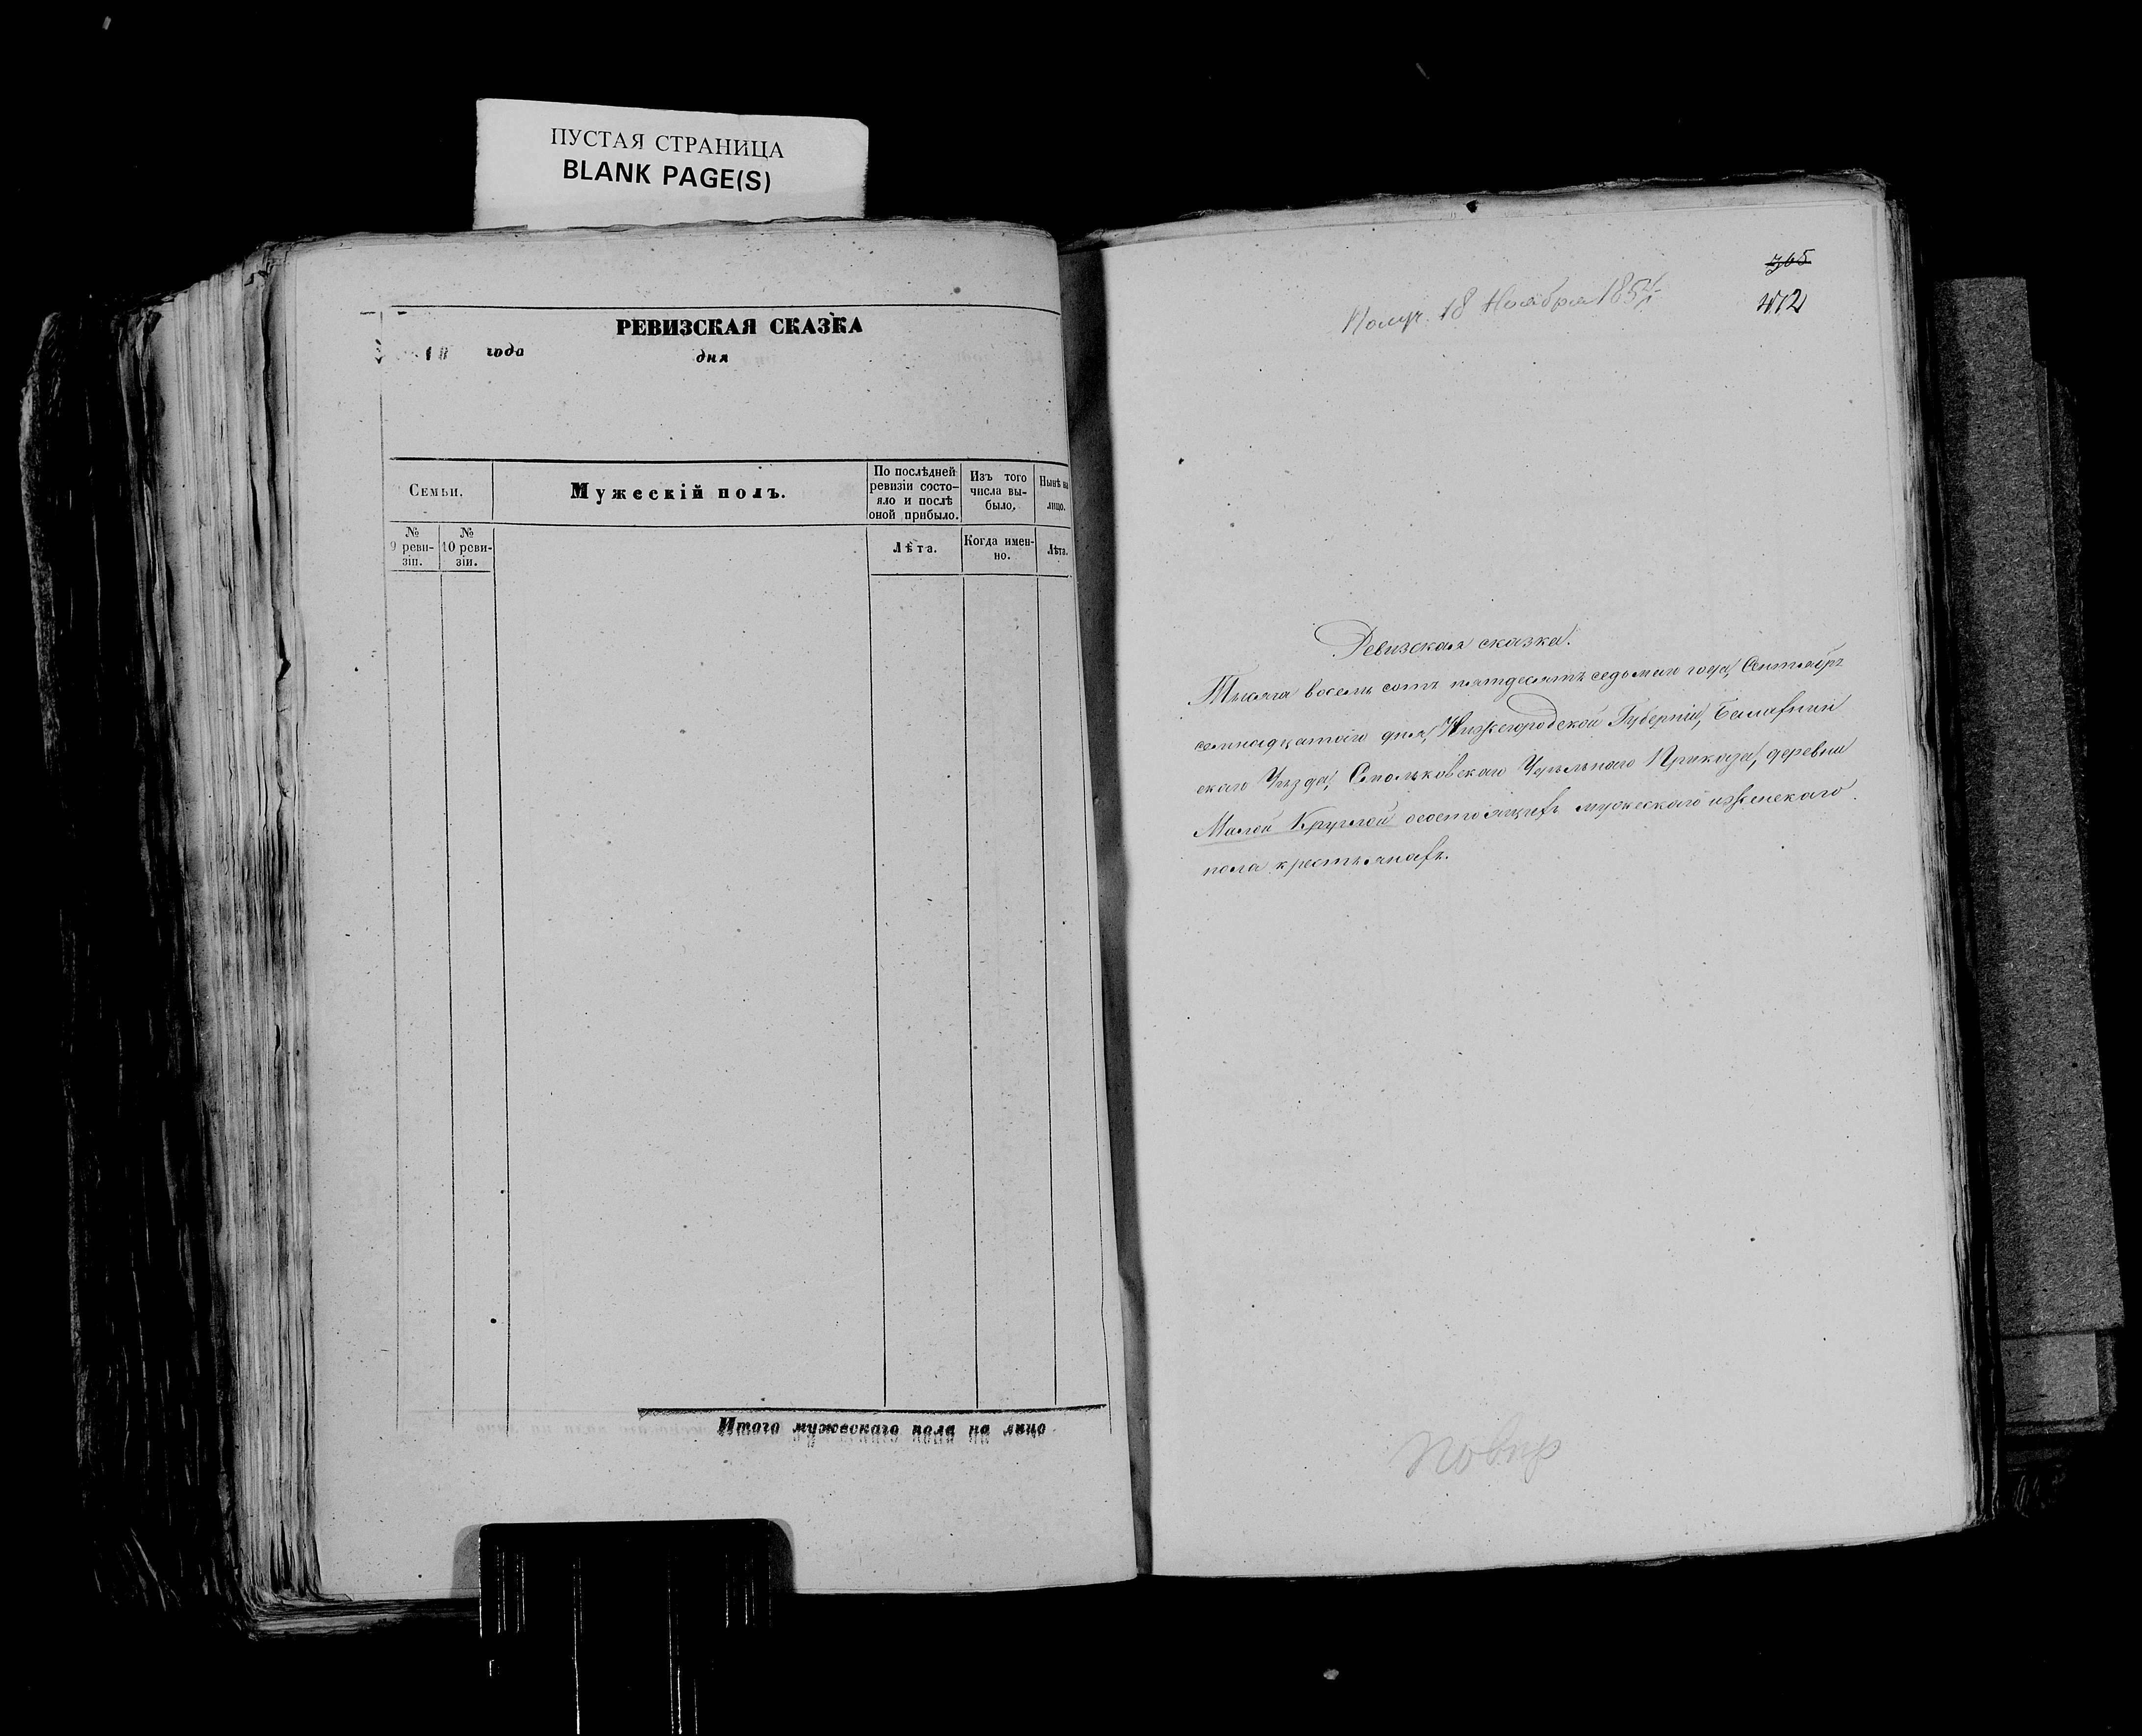 ПУСТАЯ СТРАНИЦА
BLANK PAGE(S)
РЕВИЗСКАЯ СКАЗКА
18 года дня
Семьи.
Мужескій полъ.
По послѣдней
ревизіи состо-
яло и послѣ
оной прибыло.
Изъ того
числа вы-
было.
Нынѣ на
лицо.
№
9 реви-
зіи.
№
10 реви-
зіи.
Лѣта.
Когда имен-
но.
Лѣта.
Итого мужескаго пола на лицо
365
412
Получ. 18 Ноября 185
Ревизская сказка.
Тысяча восемь сотъ пятдесятъ седьмаго года, Сентября
семнадцатаго дня, Нижегородской Губерніи, Балахнин
скаго Уѣзда, Смольковскаго Удѣльнаго Приказа, деревни
Малой Круглой о состоящихъ мужескаго и женскаго
пола крестьянахъ.